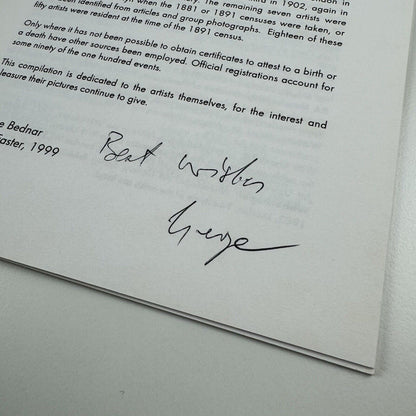 in 1902, again in
when the 1881 or 1891 censuses were taken, or
been identified from articles and group photographs. Eighteen of these
fifty artists were resident at the time of the 1891 census.
The remaining seven artists were
Only where it has not been possible to obtain certificates to attest to a birth or
a death have other sources been employed. Official registrations account for
some ninety of the one hundred events.
This compilation is dedicated to the artists themselves, for the interest and
pleasure their pictures continue to give.
Bednar
Easter, 1999
Best wishes
George